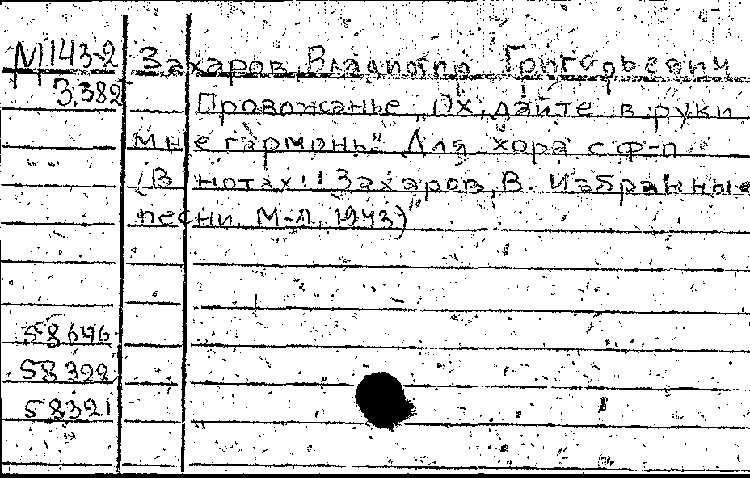 М143-2 Захаров, Владимир Григорьевич
3.382 Провожанье „Ох, дайте в руки
мне гармонь". Для хора с ф-п
(В нотах: Захаров, В. Избранные
песни. М-Л. 1943)
58646
58322
58321